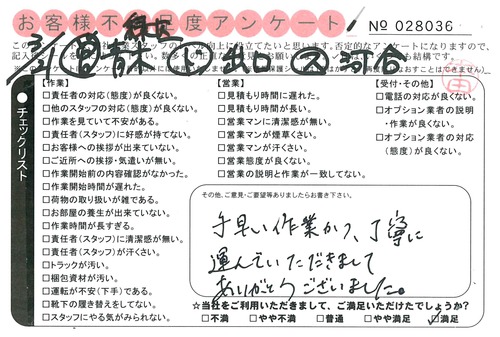 お客様不満足度アンケート
No 028036
【作業】
□責任者の対応(態度)が良くない。
□他のスタッフの対応(態度)が良くない。
□作業を見ていて不安がある。
□責任者(スタッフ)に好感が持てない。
□お客様への挨拶が出来ていない。
□ご近所への挨拶・気遣いが無い。
□作業開始前の内容確認がなかった。
□作業開始時間が遅れた。
□荷物の取り扱いが雑である。
□お部屋の養生が出来ていない。
□作業時間が長すぎる。
□責任者(スタッフ)に清潔感が無い。
□責任者(スタッフ)が汗くさい。
□トラックが汚い。
□梱包資材が汚い。
□運転が不安(下手)である。
□靴下の履き替えをしてない。
□スタッフにやる気がみられない。
【営業】
□見積もり時間に遅れた。
□見積もり時間が長い。
□営業マンに清潔感が無い。
□営業マンが煙草くさい。
□営業マンが汗くさい。
□営業態度が良くない。
□営業の説明と作業が一致してない。
【受付・その他】
□電話の対応が良くない。
□オプション業者の説明
・作業が良くない。
□オプション業者の対応
(態度)が良くない。
チェックリスト
その他、ご意見・ご要望等ありましたらお書き下さい。
手早い作業かつ、丁寧に
運んでいただきまして
ありがとうございました。
☆当社をご利用いただきまして、ご満足いただけたでしょうか?
□不満 □やや不満 □普通 □やや満足 ☑満足